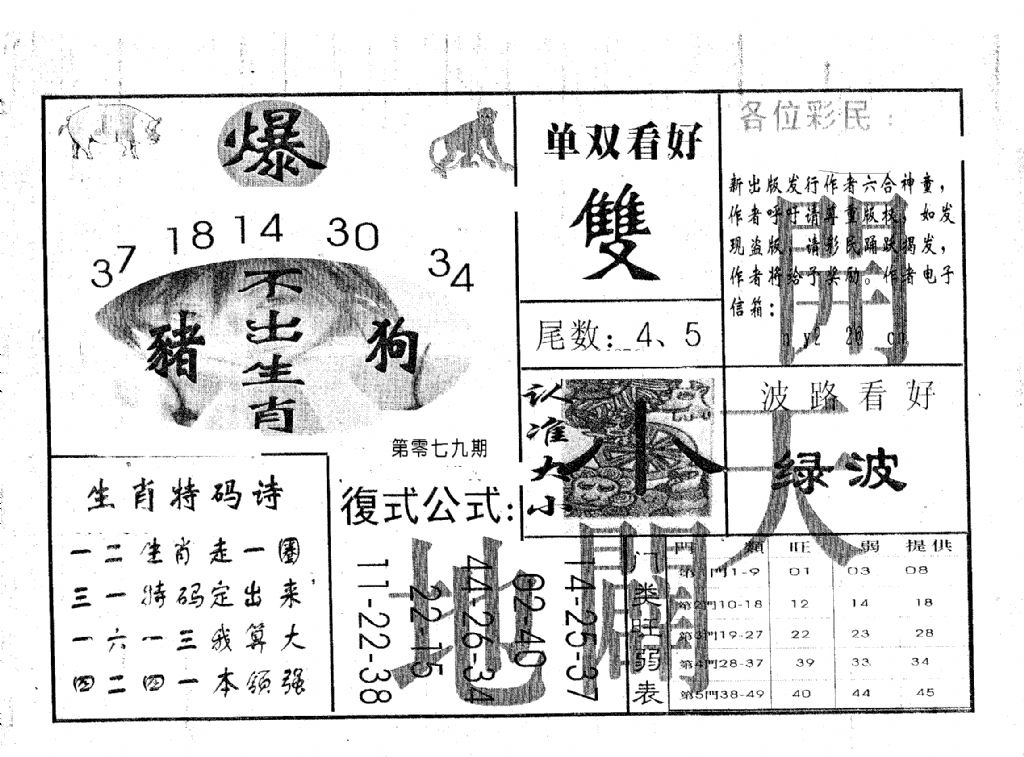 爆
37 18 14 30 34
不出生肖
豬
狗
第零七九期
单双看好
雙
尾数：4、5
认准大小
小
各位彩民：
新出版发行作者六合神童，
作者呼吁请尊重版权，如发
现盗版，请彩民踊跃揭发，
作者将给予奖励。作者电子
信箱：
開
波路看好
绿波
天
生肖特码诗
一二生肖走一圈
三一特码定出来
一六一三我算大
四二四一本领强
復式公式：
11-22-38
22-15
44-26-34
02-40
14-25-37
地
開
门类旺弱表
門類 旺 弱 提供
第1門1-9 01 03 08
第2門10-18 12 14 18
第3門19-27 22 23 28
第4門28-37 39 33 34
第5門38-49 40 44 45